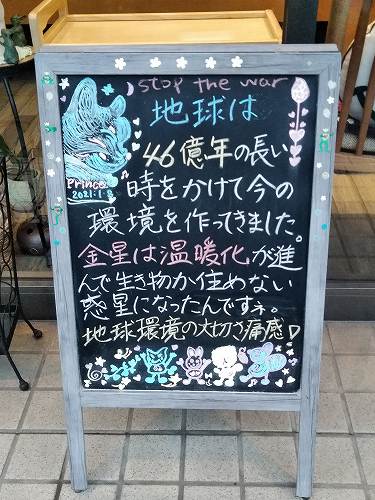 stop the war
地球は
46億年の長い
時をかけて今の
環境を作ってきました。
金星は温暖化が進
んで生き物が住めない
惑星になったんですネ。
地球環境の大切さ痛感♡
Prince
2021.1.8